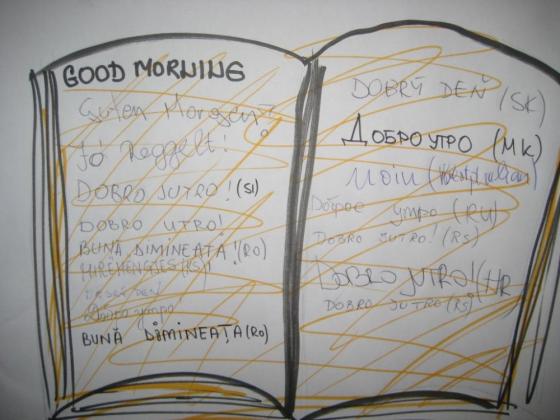 GOOD MORNING
Guten Morgen!
Jó Reggelt!
DOBRO JUTRO! (SI)
DOBRO UTRO!
BUNĂ DIMINEAȚA! (RO)
BUNĂ DIMINEAȚA (RO)
DOBRÝ DEŇ (SK)
ДОБРО УТРО (MK)
Moin
Доброе утро (RU)
DOBRO JUTRO! (RS)
DOBRO JUTRO! (HR
DOBRO JUTRO (RS)